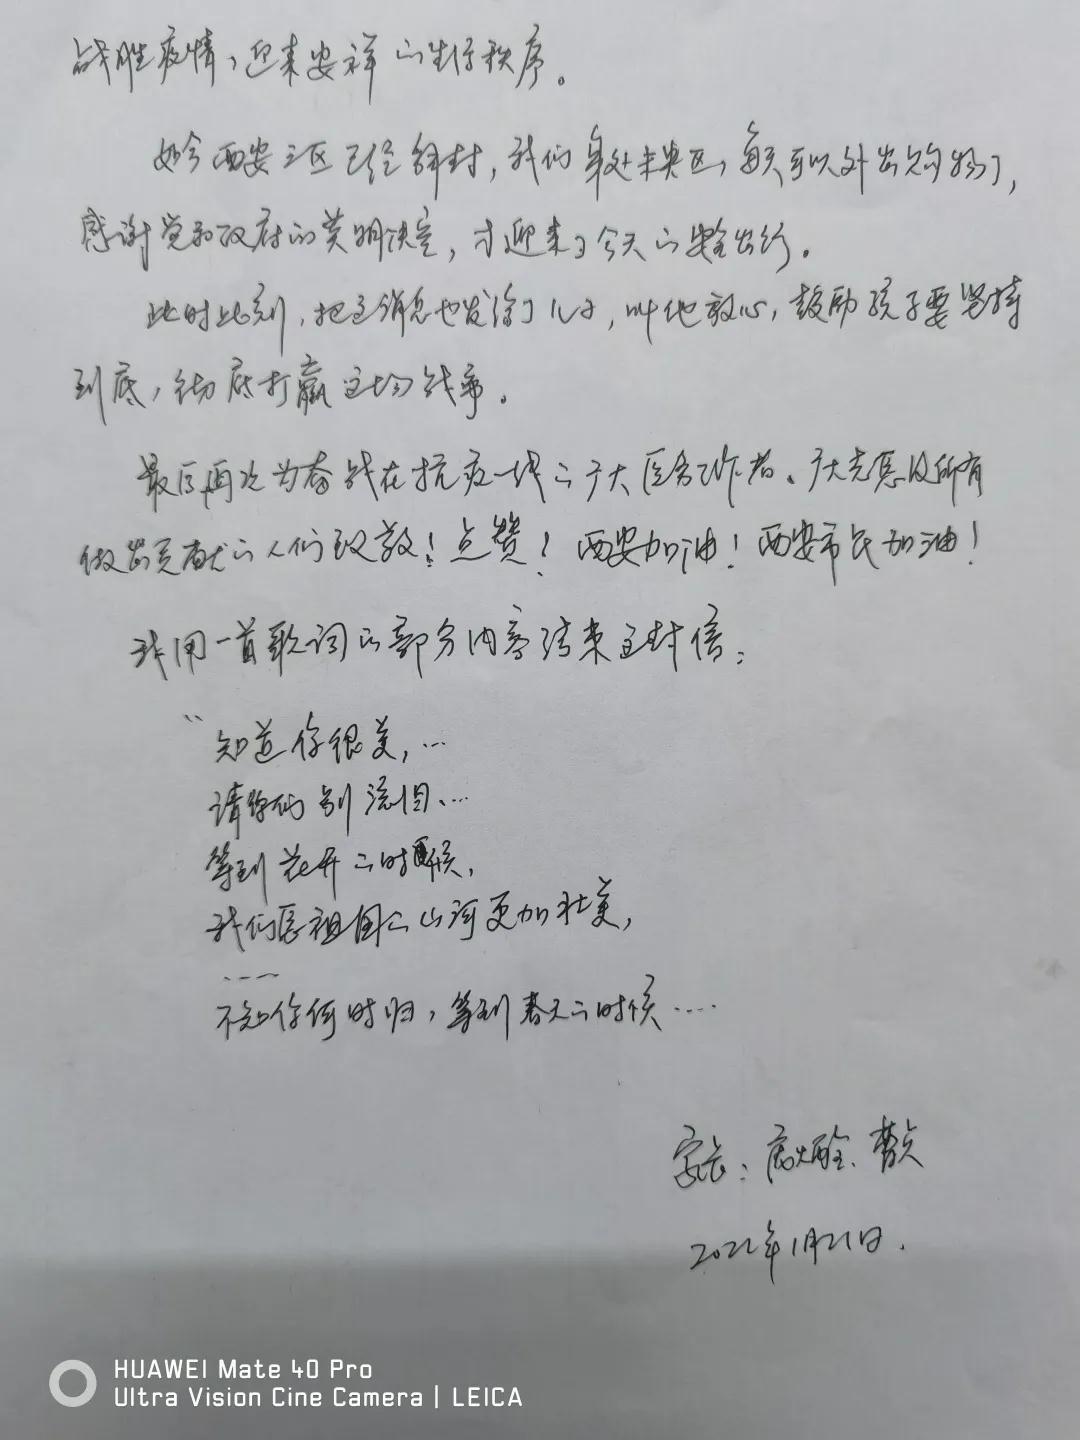 战胜疫情，迎来安祥的生活秩序。
如今西安三区已经解封，我们身处未央区，每天可以外出购物了，
感谢党和政府的英明决定，才迎来了今天的安全出行。
此时此刻，把这消息也发给了儿子，叫他放心，鼓励孩子要坚持
到底，彻底打赢这场战争。
最后再次为奋战在抗疫一线的广大医务工作者、广大志愿及所有
做出贡献的人们致敬！点赞！西安加油！西安市民加油！
我用一首歌词的部分内容结束这封信：
“知道你很美，…
请你们别流泪、…
等到花开的时候，
我们祖国的山河更加壮美，
……
不知你何时归，等到春天的时候……
家长：
2022年1月21日.
HUAWEI Mate 40 Pro
Ultra Vision Cine Camera | LEICA